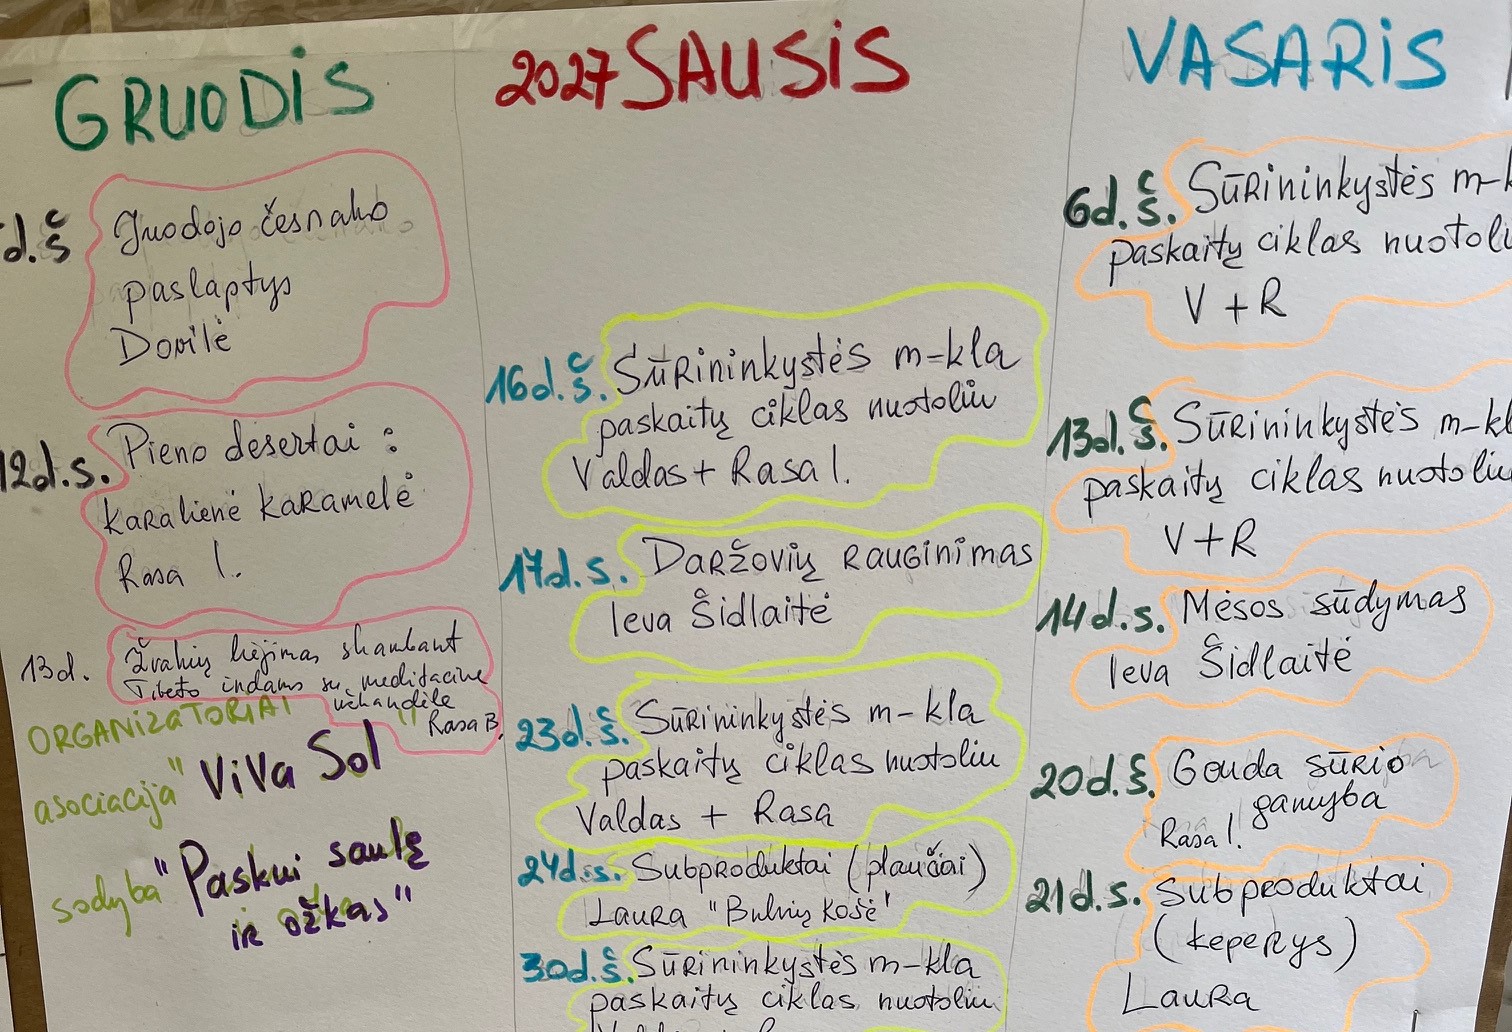 GRUODIS
d.š
Juodojo česnako
paslaptys
Dovilė
12d.s.
Pieno desertai:
karalienė karamelė
Rasa I.
13d.
Žvakių liejimas skambant
Tibeto indams su meditacine
užkandėle
Rasa B.
ORGANIZATORIAI
asociacija "ViVa Sol"
sodyba "Paskui saulę
ir ožkas"
2027 SAUSIS
16d.š.
Sūrininkystės m-kla
paskaitų ciklas nuotoliu
Valdas + Rasa I.
17d.s.
Daržovių rauginimas
Ieva Šidlaitė
23d.š.
Sūrininkystės m-kla
paskaitų ciklas nuotoliu
Valdas + Rasa
24d.s.
Subproduktai (plaučiai)
Laura "Bulvių košė"
30d.š.
Sūrininkystės m-kla
paskaitų ciklas nuotoliu
VASARIS
6d.š.
Sūrininkystės m-k
paskaitų ciklas nuotoliu
V + R
13d.š.
Sūrininkystės m-kl
paskaitų ciklas nuotoliu
V+R
14d.s.
Mėsos sūdymas
Ieva Šidlaitė
20d.š.
Gouda sūrio
gamyba
Rasa I.
21d.s.
Subproduktai
(kepenys)
Laura